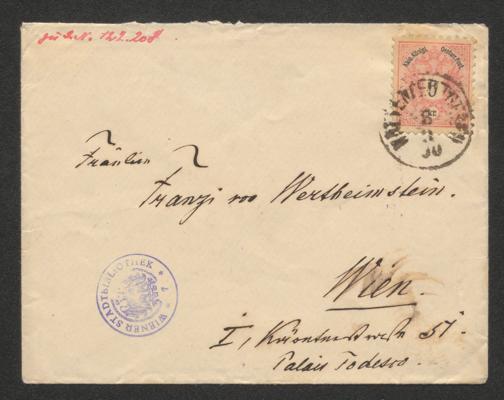 zu I. N. 122.208
Kais. Königl. Oesterr. Post.
8
90
Fräulein
Franzi von Wertheimstein.
Wien.
I, Kärntnerstrasse 51.
Palais Todesco.
WIENER STADTBIBLIOTHEK